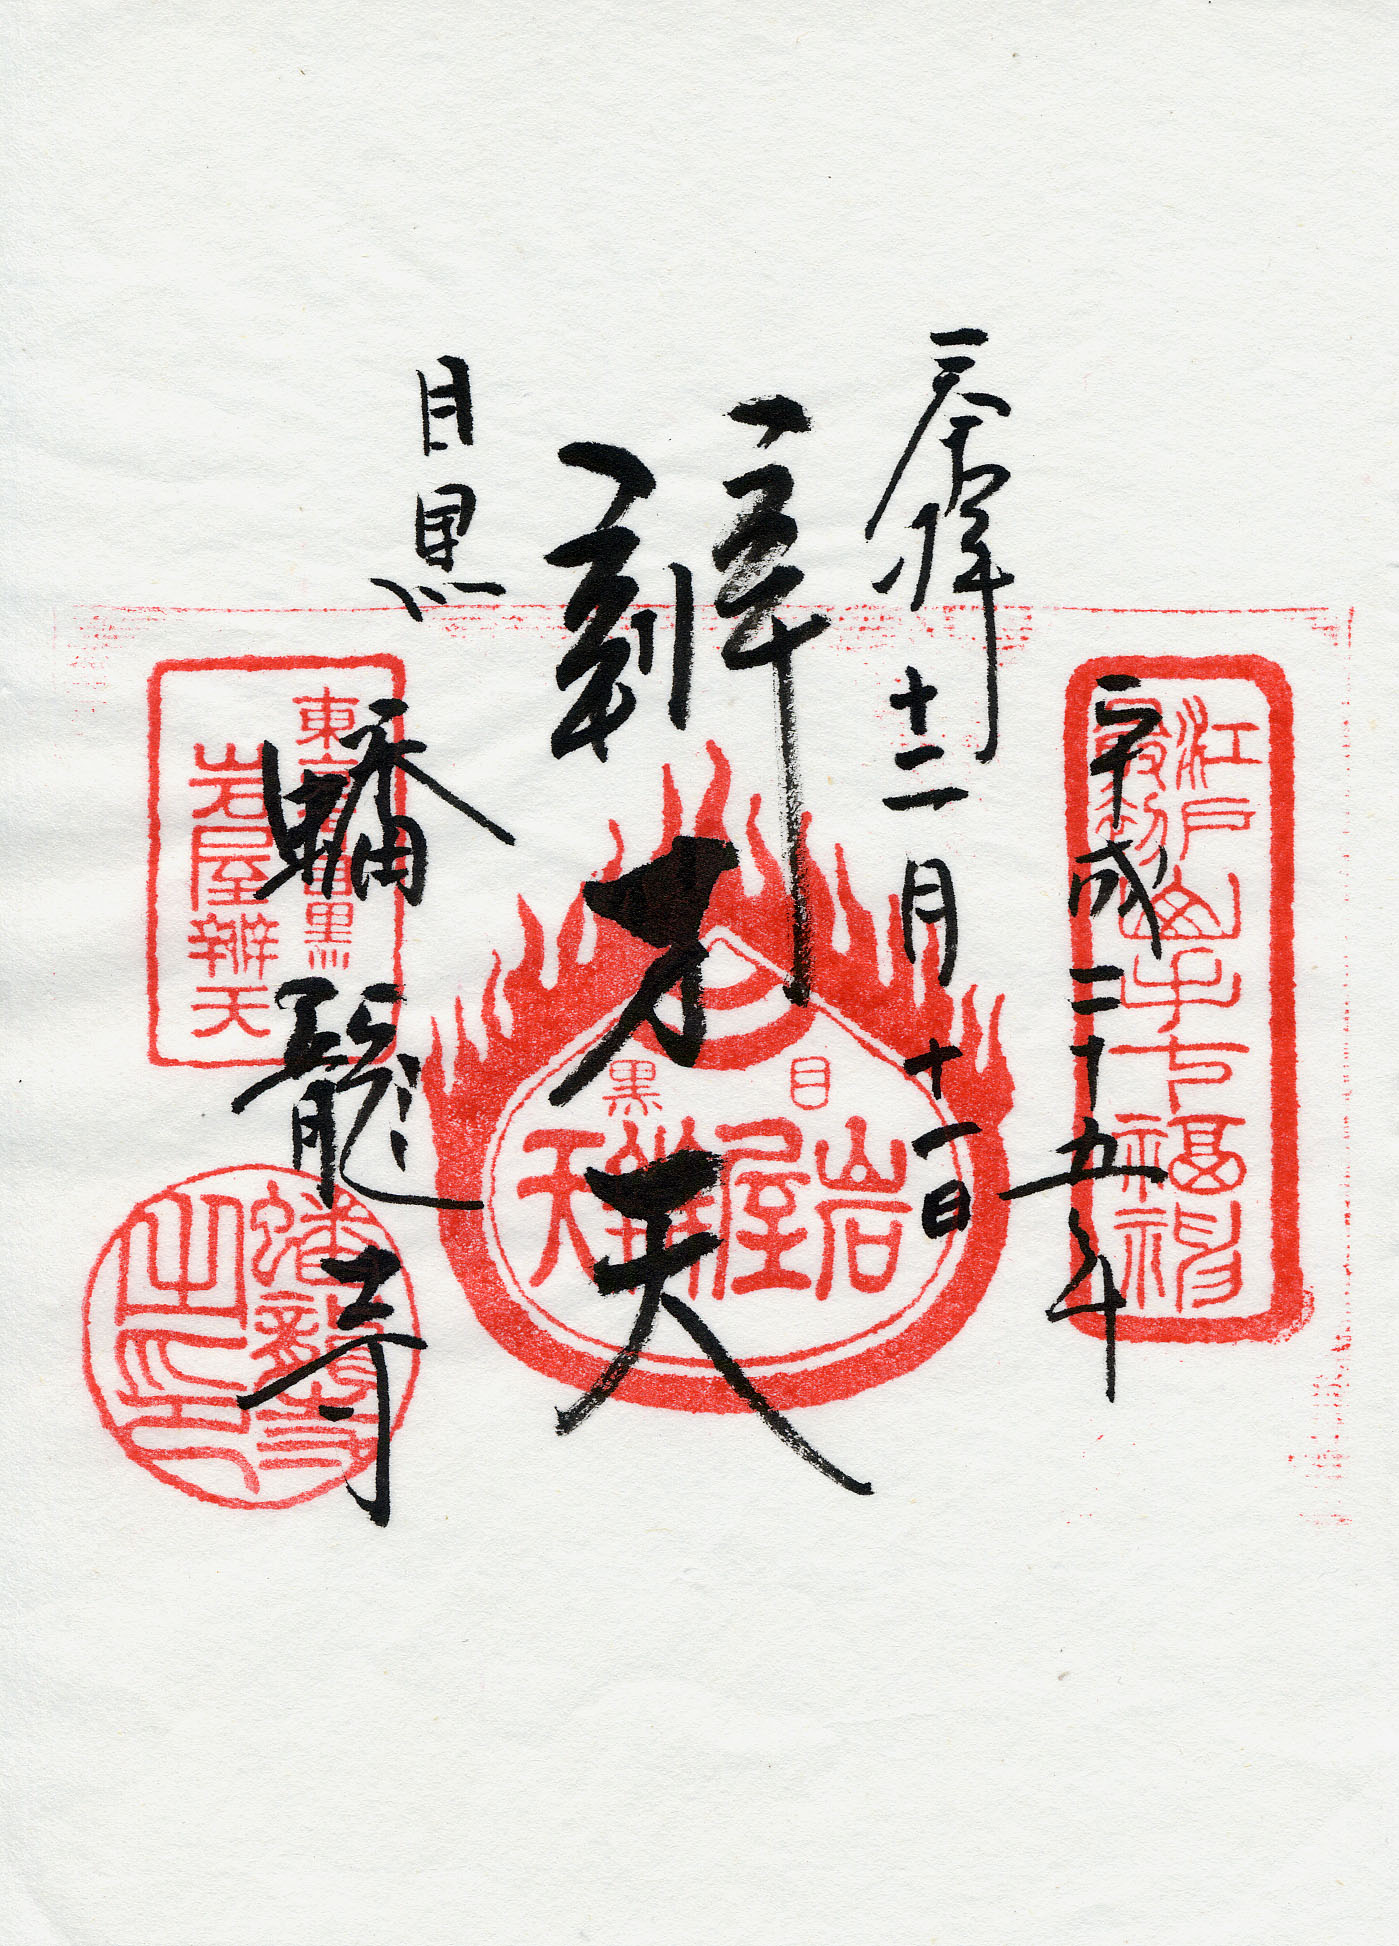 奉拝 十二月十一日
平成二十五年
辨才天
目黒
蟠龍寺
江戸最初山手七福神
目黒
岩屋辨天
東京目黒
岩屋辨天
蟠龍寺
之印